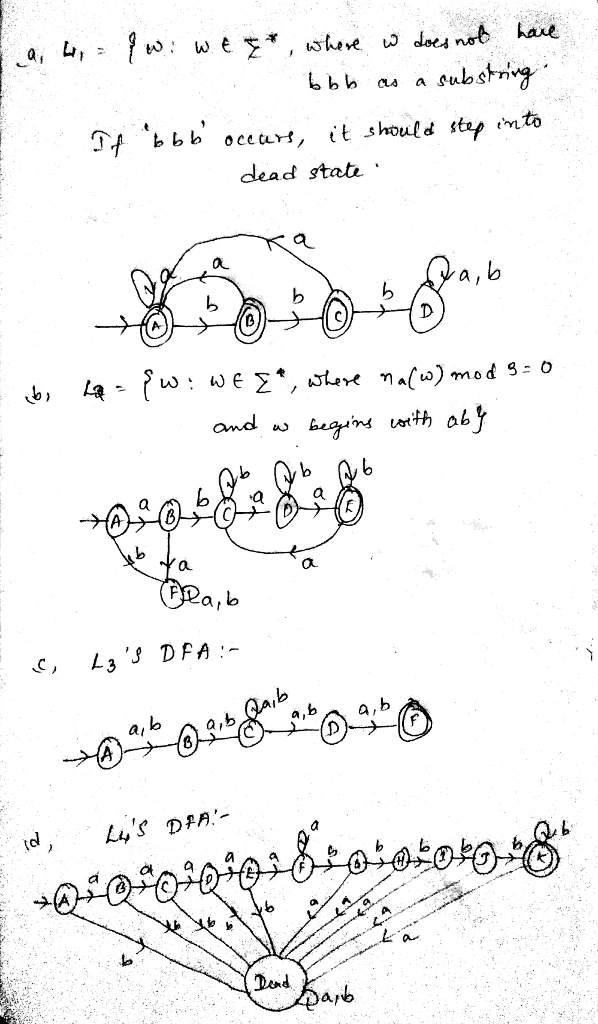 a, L1, = { w : w ∈ Σ*, where w does not have
bbb as a substring.
If 'bbb' occurs, it should step into
dead state.
a a a a,b
b b b
A B C D
b, L2 = { w : w ∈ Σ*, where na(w) mod 3 = 0
and w begins with ab}
b b b
a b a a
A B C D E
b a a
F a,b
c, L3's DFA:-
a,b
a,b a,b a,b a,b
A B C D F
d, L4's DFA:-
a b
a a a a a b b b b b
A B C D E F H I J K
b b b b b a a a a a
Dead a,b